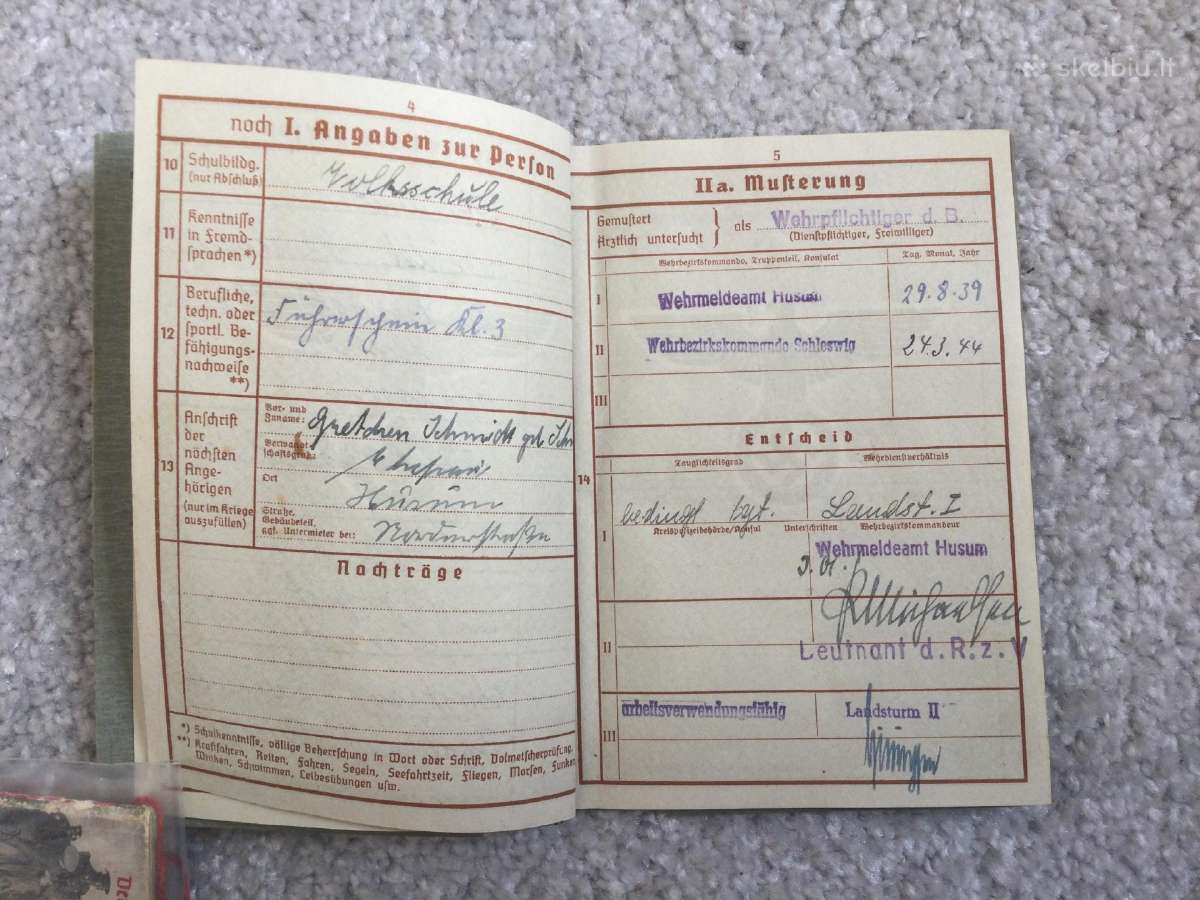 skelbiu.lt
4
noch I. Angaben zur Person
10 Schulbildg. (nur Abschluß)
Volksschule
11 Kenntnisse in Fremdsprachen*)
12 Berufliche, techn. oder sportl. Befähigungsnachweise **)
Führerschein Kl. 3
13 Anschrift der nächsten Angehörigen (nur im Kriege auszufüllen)
Vor- und Zuname: Gretchen Schmidt geb. Sch
Verwandtschaftsgrad: Ehefrau
Ort Husum
Straße, Gebäudeteil, ggf. Untermieter bei: Norderstraße
Nachträge
*) Schulkenntnisse, völlige Beherrschung in Wort oder Schrift, Dolmetscherprüfung.
**) Kraftfahren, Reiten, Fahren, Segeln, Seefahrtzeit, Fliegen, Morsen, Funken
Winken, Schwimmen, Leibesübungen usw.
5
IIa. Musterung
Gemustert
Ärztlich untersucht } als Wehrpflichtiger d. B.
(Dienstpflichtiger, Freiwilliger)
Wehrbezirkskommando, Truppenteil, Konsulat Tag, Monat, Jahr
I Wehrmeldeamt Husum 29.8.39
II Wehrbezirkskommando Schleswig 24.3.44
III
Entscheid
14 Tauglichkeitsgrad Wehrdienstverhältnis
I bedingt tgt. Landst. I
Kreispolizeibehörde/Konsul Unterschriften Wehrbezirkskommandeur
Wehrmeldeamt Husum
II
Leutnant d. R. z. V
III arbeitsverwendungsfähig Landsturm II